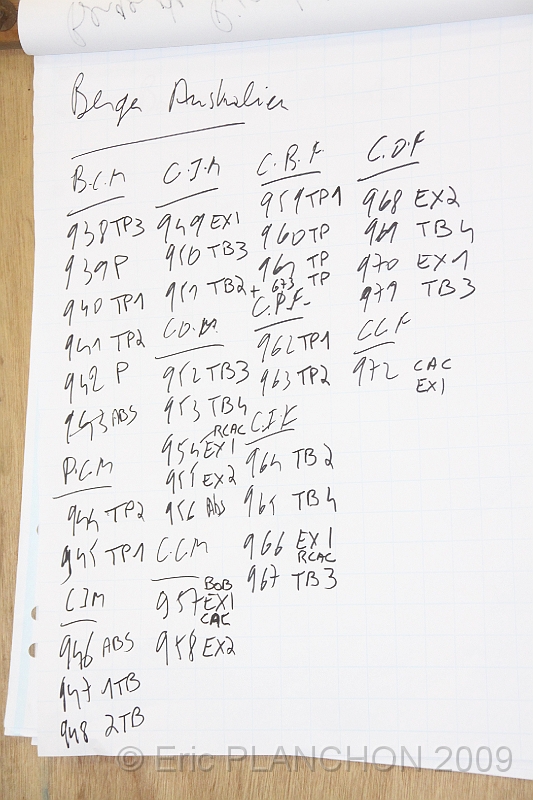 Berger Australien
B.C.M
938 TP3
939 P
940 TP1
941 TP2
942 P
943 ABS
P.C.M
944 TP2
945 TP1
CIM
946 ABS
947 1TB
948 2TB
C.J.M
949 EX1
950 TB3
951 TB2
C.O.M
952 TB3
953 TB4
RCAC
954 EX1
955 EX2
956 Abs
C.C.M
BOB
957 EX1
CAC
958 EX2
C.B.F
959 TP1
960 TP
961 TP
+ 673 TP
C.P.F
962 TP1
963 TP2
C.I.F
964 TB2
965 TB4
966 EX1
RCAC
967 TB3
C.O.F
968 EX2
969 TB4
970 EX1
971 TB3
C.C.F
972 CAC
EX1
© Eric PLANCHON 2009